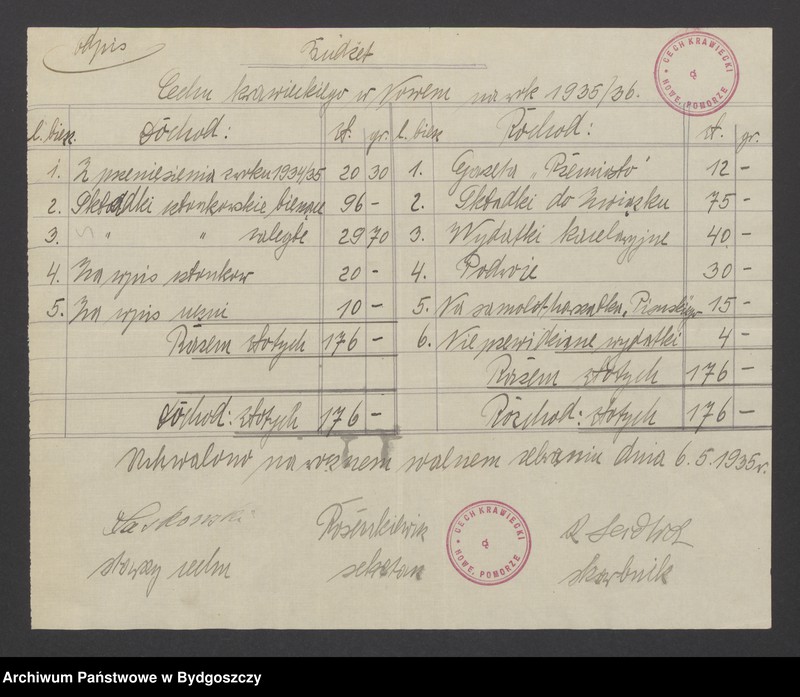 odpis
Budżet
Cechu krawieckiego w Nowem na rok 1935/36.
CECH KRAWIECKI
NOWE, POMORZE
l. bież. Dochod: zł. gr. l. bież. Rozchod: zł. gr.
1. Z przeniesienia z roku 1934/35 20 30 1. Gazeta „Rzemiosło" 12 -
2. Składki członkowskie bieżące 96 - 2. Składki do Związku 75 -
3. " " zaległe 29 70 3. Wydatki kancelaryjne 40 -
4. Za wpis członkow 20 - 4. Podroże 30 -
5. Za wpis uczni 10 - 5. Na samolot harcerza 15 -
Razem złotych 176 - 6. Nieprzewidziane wydatki 4 -
Razem złotych 176 -
Dochod: złotych 176 - Rozchod: złotych 176 -
Uchwalono na rocznem walnem zebraniu dnia 6. 5. 1935 r.
starszy cechu sekretarz skarbnik
CECH KRAWIECKI
NOWE, POMORZE
Archiwum Państwowe w Bydgoszczy